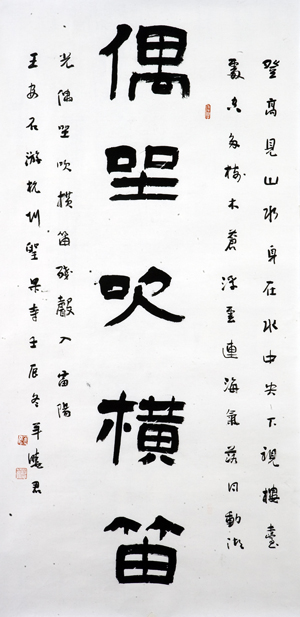 登高見山水身在水中央下視樓臺
處空多樹木蒼浮雲連海氣落日動湖
偶坐吹橫笛
光偶坐吹橫笛殘聲入富陽
王安石游杭州聖果寺壬辰冬年